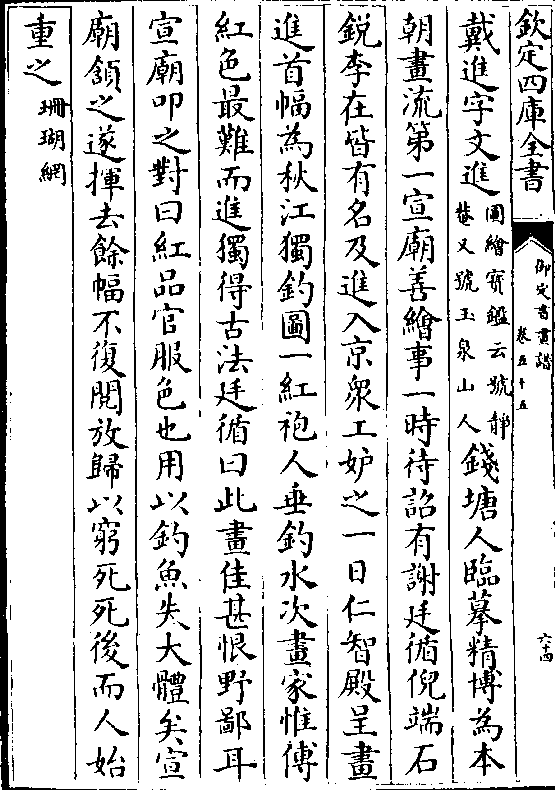 欽定四庫全書
御定書畫譜
卷五十五
六十四
戴進字文進圖繪寶鑑云號靜
菴又號玉泉山人錢塘人臨摹精博為本
朝畫流第一宣廟善繪事一時待詔有謝廷循倪端石
銳李在皆有名及進入京衆工妒之一日仁智殿呈畫
進首幅為秋江獨釣圖一紅袍人垂釣水次畫家惟傅
紅色最難而進獨得古法廷循曰此畫佳甚恨野鄙耳
宣廟叩之對曰紅品官服色也用以釣魚失大體矣宣
廟頷之遂揮去餘幅不復閱放歸以窮死死後而人始
重之珊瑚網